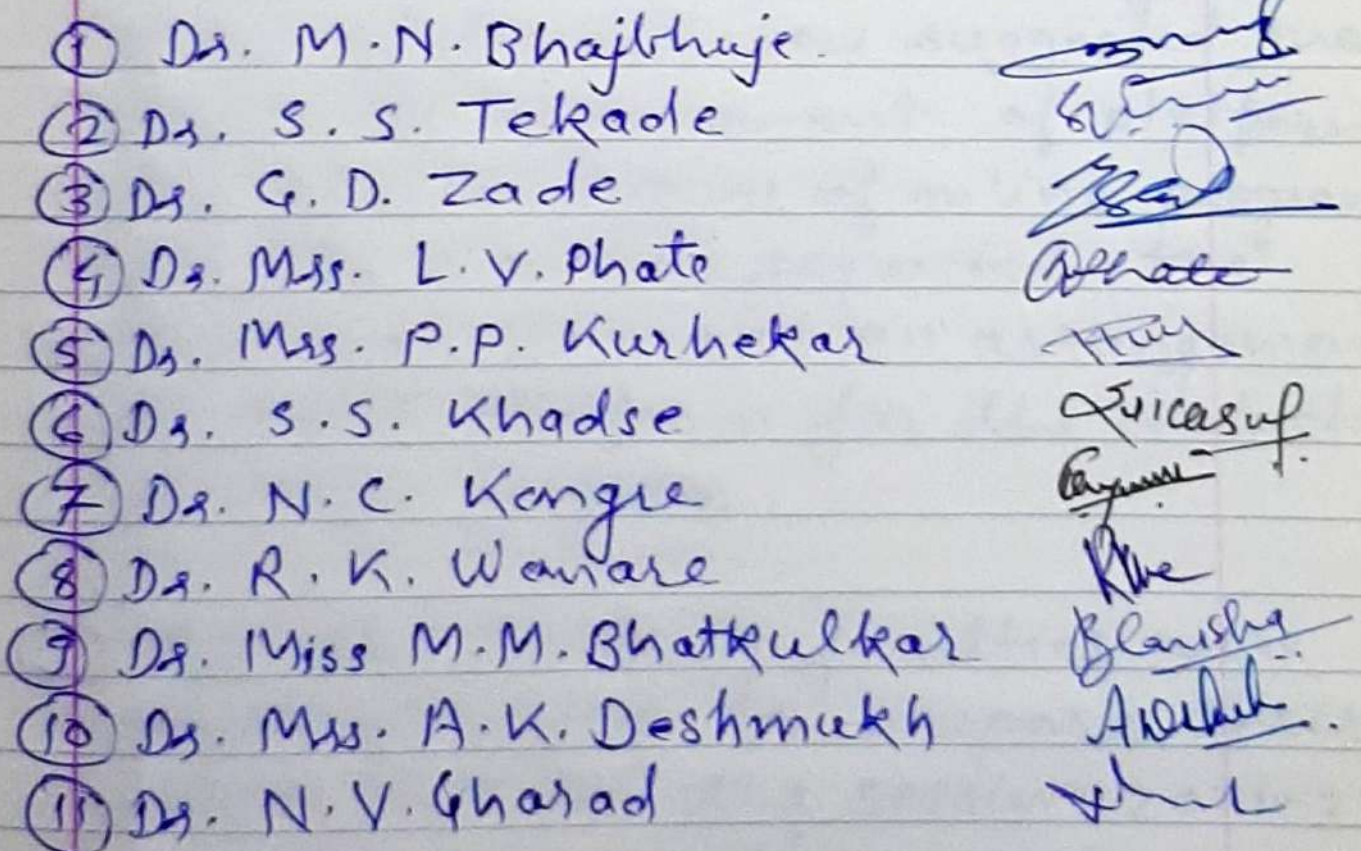 1 Dr. M.N. Bhajbhuje.
2 Dr. S. S. Tekade
3 Dr. G. D. Zade
4 Dr. Mrs. L. V. Phate
5 Dr. Mrs. P.P. Kurhekar
6 Dr. S.S. Khadse
7 Dr. N. C. Kongre
8 Dr. R. K. Wanare
9 Dr. Miss M.M. Bhatkulkar
10 Dr. Mrs. A.K. Deshmukh
11 Dr. N. V. Gharad